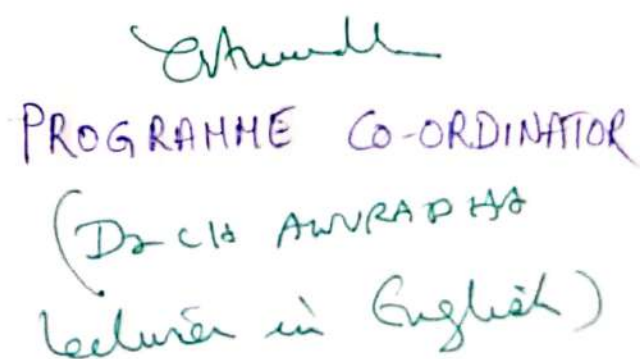 PROGRAMME CO-ORDINATOR
(Dr CH ANURADHA
Lecturer in English)